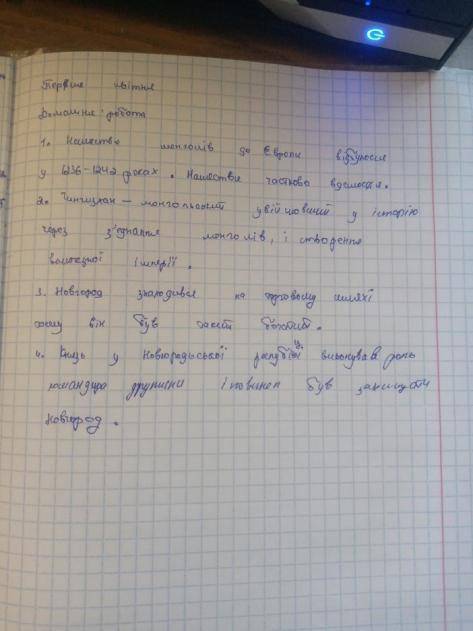 Перше квітня
Домашня робота
1. Нашество монголів до Європи відбулося
у 1236-1242 роках. Нашестви частково вдалося.
2. Чингизхан – монгольский увійшовший у історію
через з'єднання монголів, і створення
величезної імперії.
3. Новгород знаходився на торговому шляхі
тому він був такий богатий.
4. Князь у Новгородської республіці виконував роль
командира дружини і повинен був захищати
Новгород.